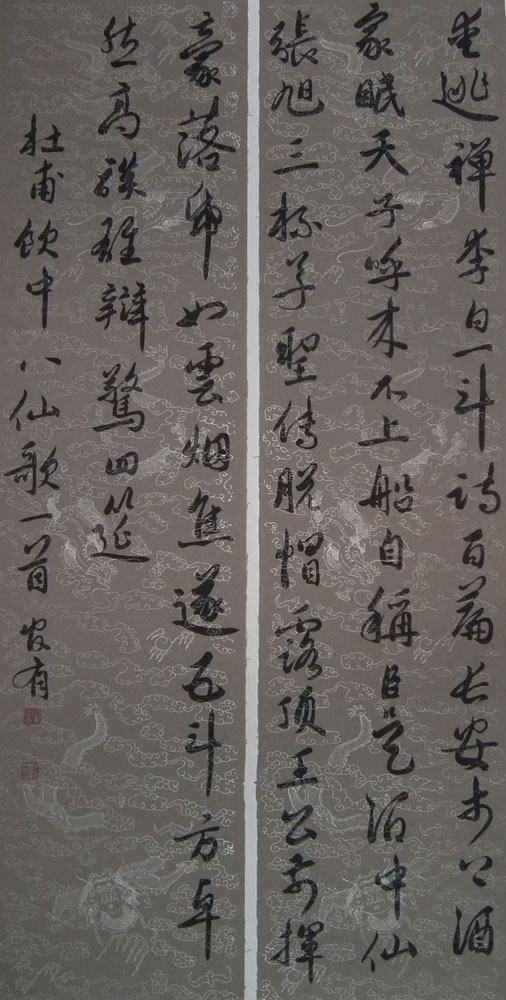 愛逃禅李白一斗詩百篇長安市上酒
家眠天子呼来不上船自稱臣是酒中仙
張旭三杯草聖傳脱帽露頂王公前揮
豪落帋如雲烟焦遂五斗方卓
然高談雄辯驚四筵
杜甫飲中八仙歌一首有